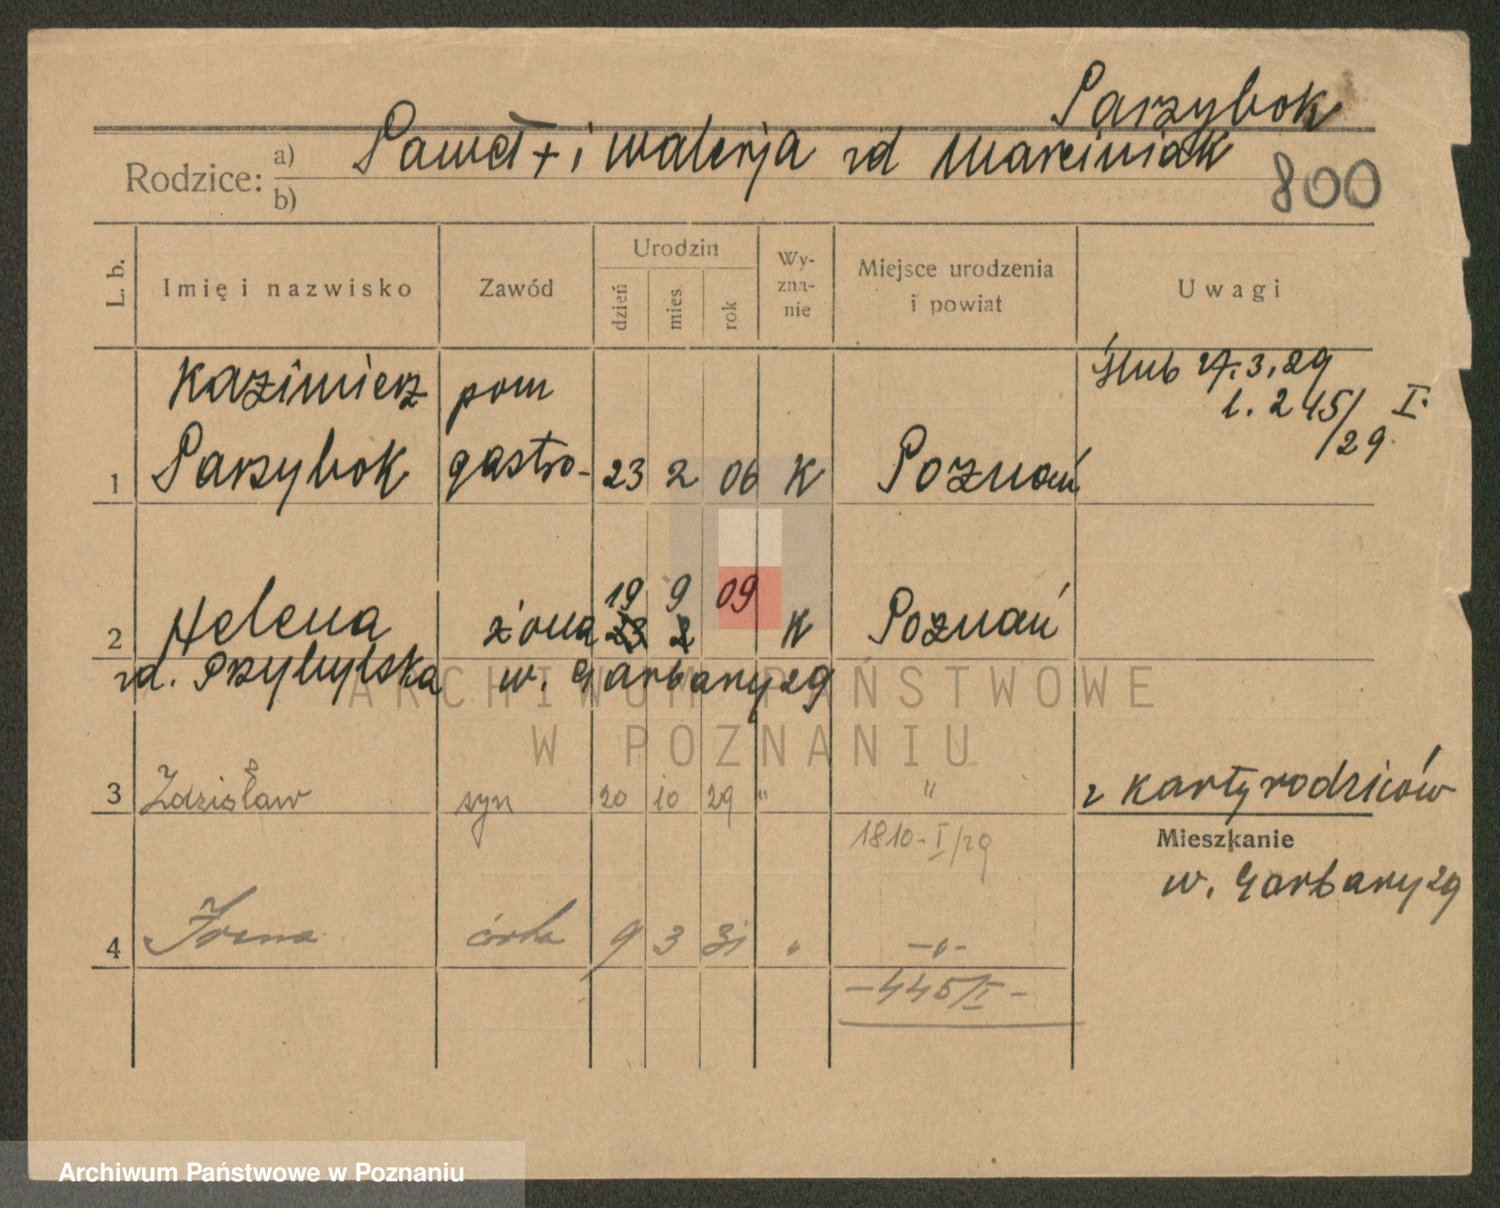 Parzybok
Rodzice: a) Paweł + i Walerja rd Marciniak
b)
800
L. b. Imię i nazwisko Zawód Urodzin dzień mies. rok Wy-zna-nie Miejsce urodzenia i powiat Uwagi
Kazimierz pom Ślub 27.3.29
l. 245/ I.
/29.
1 Parzybok gastro- 23 2 06 K Poznań
19 9 09
2 Helena żona 23 2 K Poznań
rd. Przybylska w. Garbary 29
3 Zdzisław syn 20 10 29 " " z karty rodziców
1810-I/29
Mieszkanie
w. Garbary 29
4 Irena córka 9 3 31 " -"-
-445/I-
ARCHIWUM PAŃSTWOWE
W POZNANIU
Archiwum Państwowe w Poznaniu